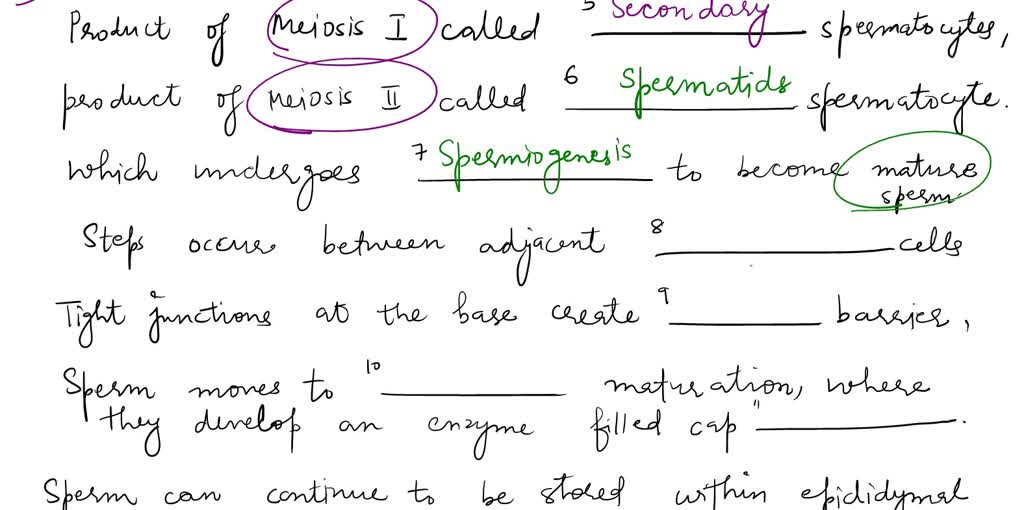 Product of Meiosis I called 5 Secondary spermatocytes,
product of Meiosis II called 6 Spermatids spermatocyte.
which undergoes 7 Spermiogenesis to become mature sperm
Steps occurs between adjacent 8 ________ cells
Tight junctions at the base create 9 ________ barrier,
Sperm moves to 10 ________ maturation, where
they develop an enzyme filled cap 11 ________.
Sperm can continue to be stored within epididymal